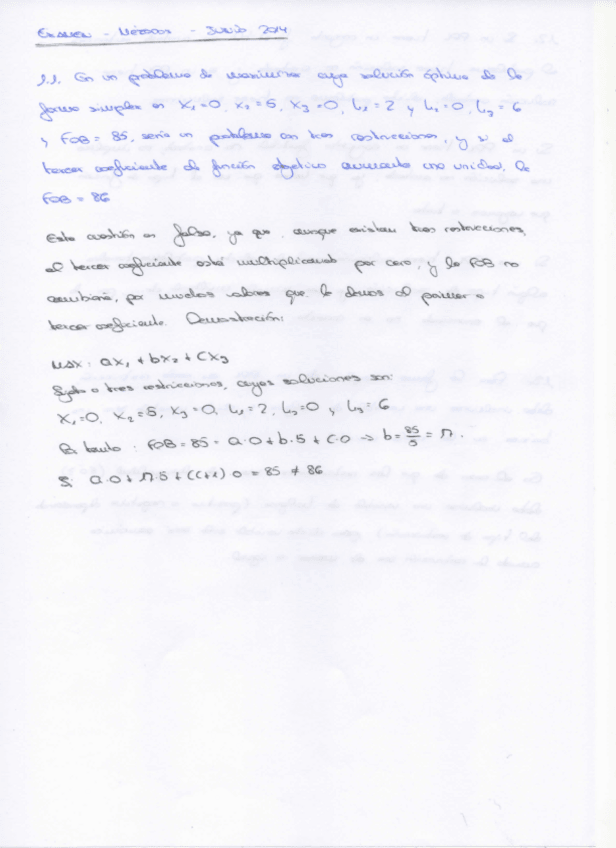 Examen - Métodos - Junio 2014
1.1. En un problema de maximizar cuya solución óptima de la
forma simplex es X₁=0, x₂=5, X₃=0, L₁=2 y L₂=0, L₃=6
y FOB = 85, sería un problema con tres restricciones, y si el
tercer coeficiente de función objetivo aumenta una unidad, la
FOB = 86
Esta cuestión es falsa, ya que, aunque existan tres restricciones,
el tercer coeficiente está multiplicando por cero, y la FOB no
cambiaría, por muchos valores que le demos al primer o
tercer coeficiente. Demostración:
MAX: ax₁ + bx₂ + cx₃
Sujeto a tres restricciones, cuyas soluciones son:
X₁=0, X₂=5, X₃=0, L₁=2, L₂=0 y L₃=6
Por tanto: FOB = 85 = a·0 + b·5 + c·0 → b = 85/5 = 17.
Si a·0 + 17·5 + (c+1) 0 = 85 ≠ 86